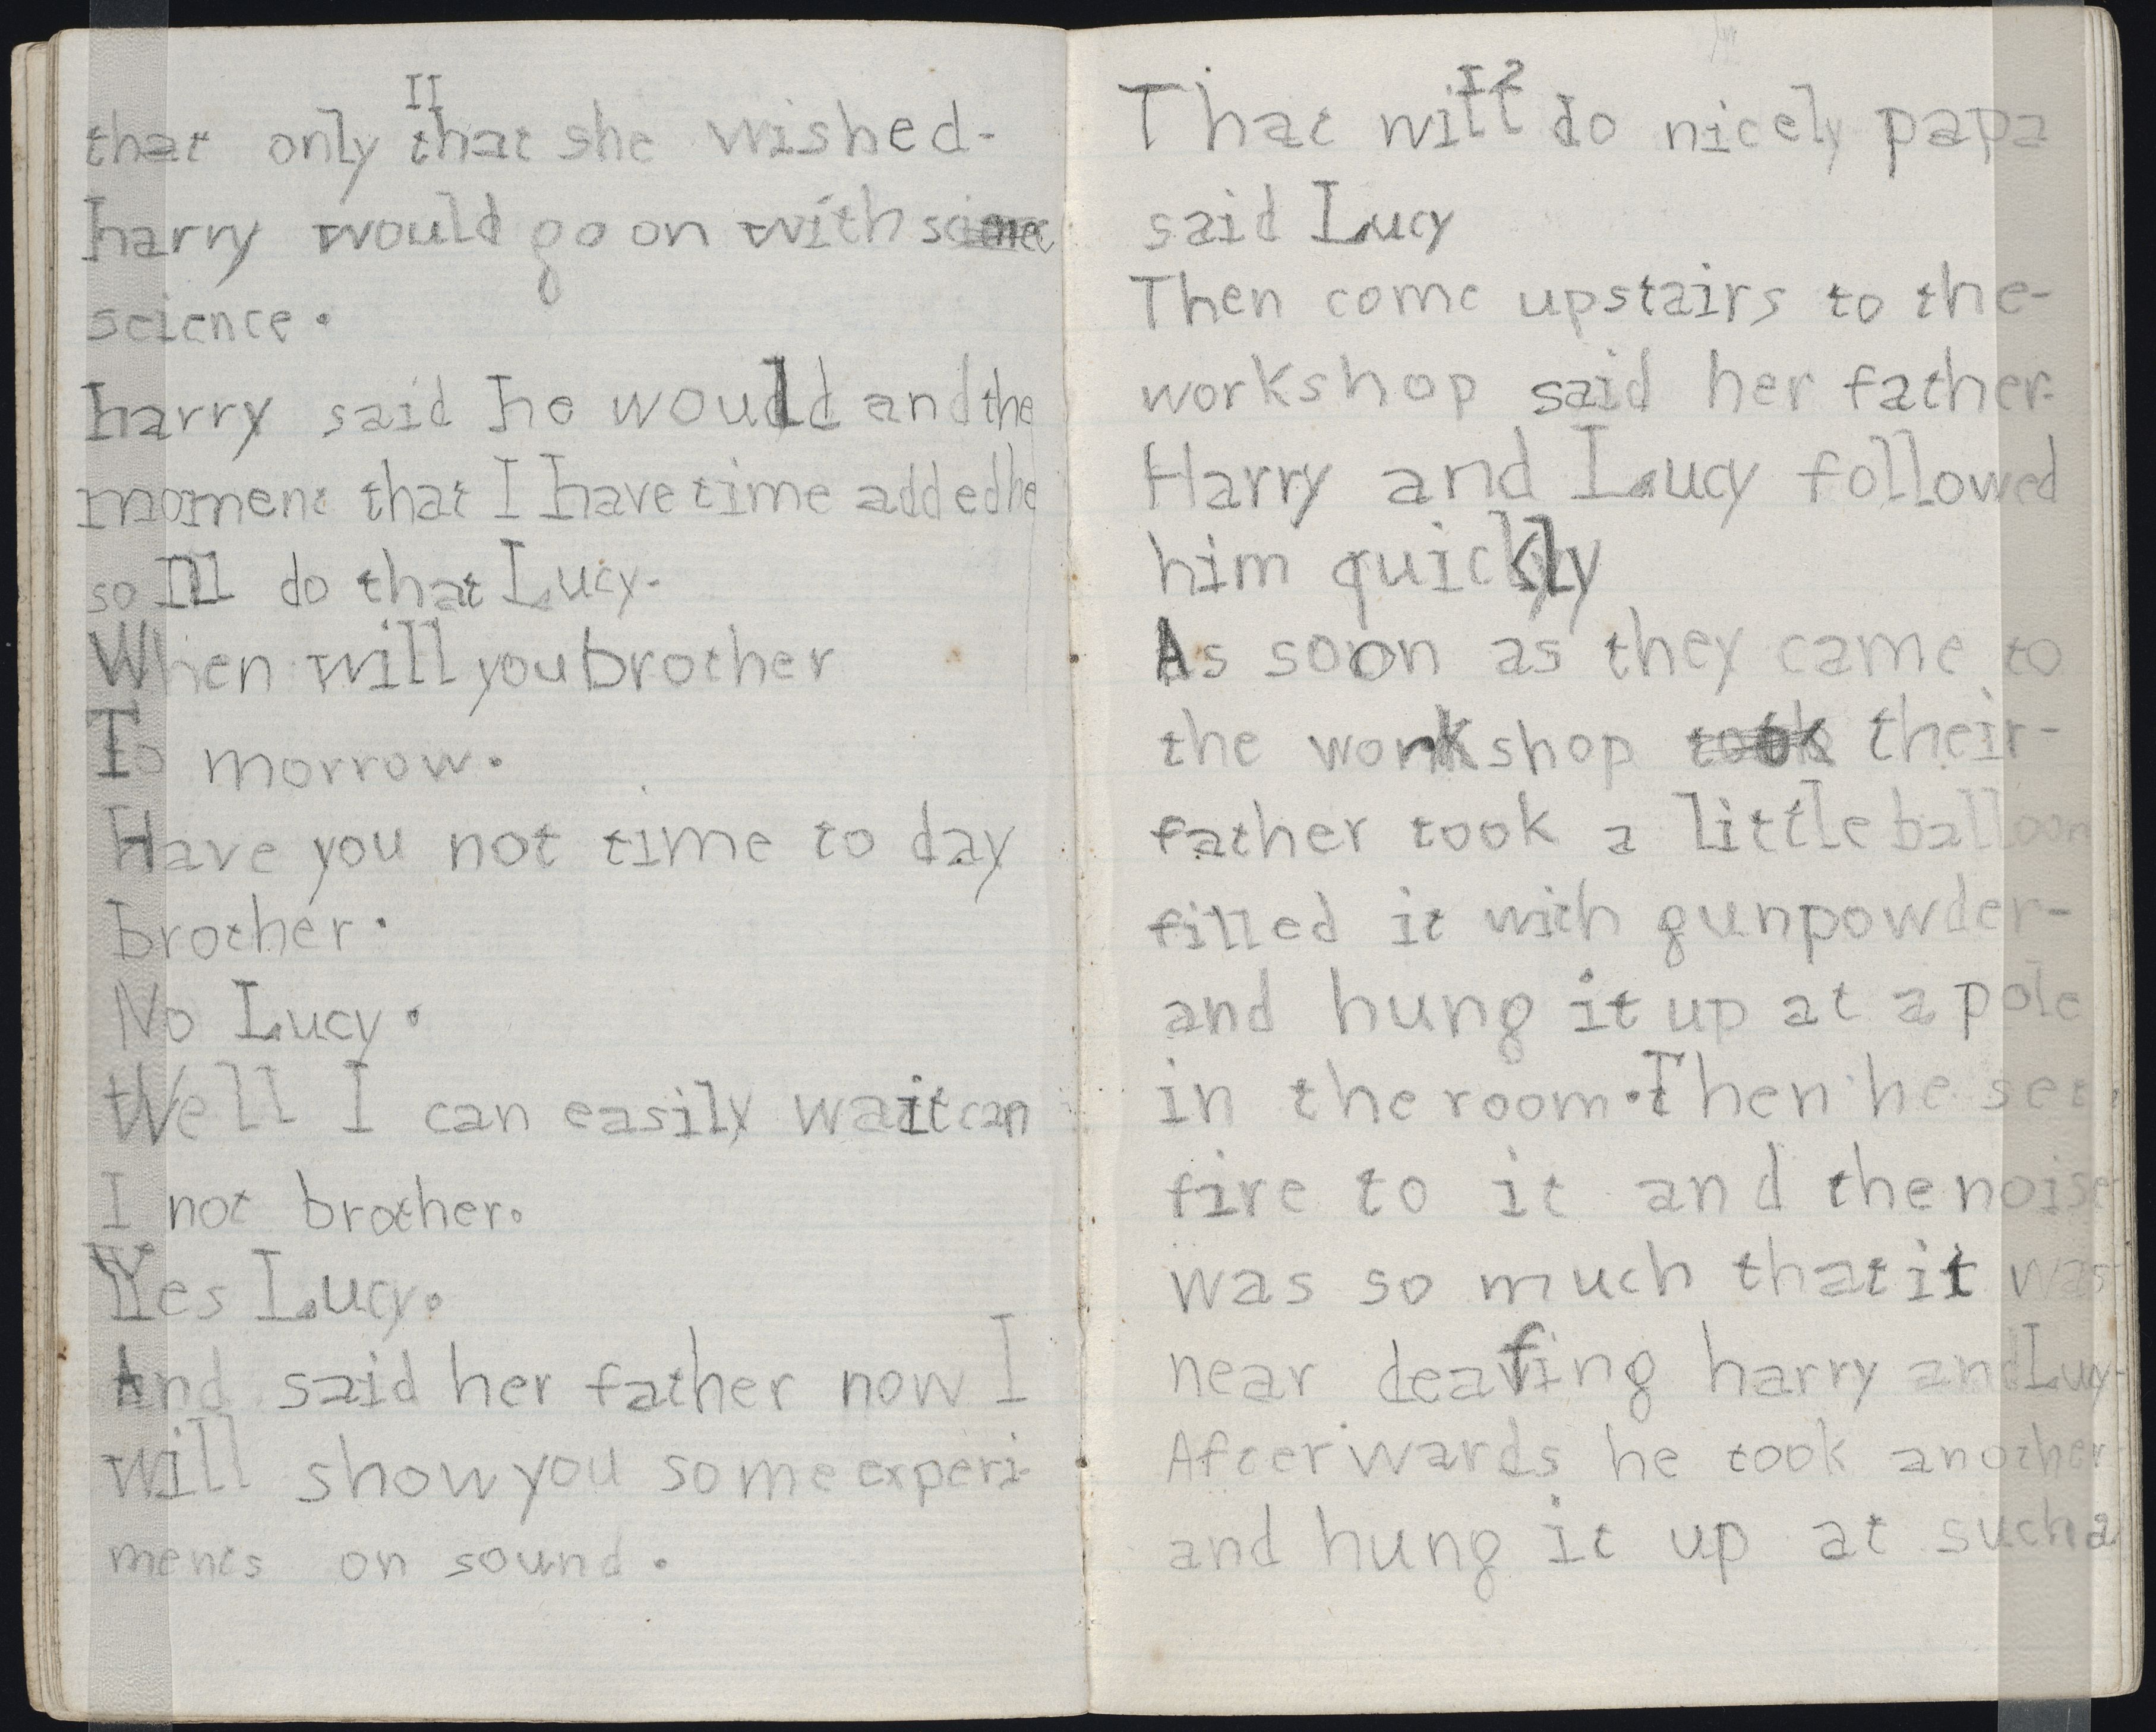 II
that only that she wished-
harry would go on with
science.
harry said he would and the
moment that I have time added he
so Ill do that Lucy.
When will you brother
To morrow.
Have you not time to day
brother.
No Lucy.
Well I can easily wait can
I not brother.
Yes Lucy.
And said her father now I
will show you some experi-
ments on sound.
I2
That will do nicely papa
said Lucy
Then come upstairs to the-
workshop said her father.
Harry and Lucy followed
him quickly
As soon as they came to
the workshop took their-
father took a little balloon
filled it with gunpowder-
and hung it up at a pole
in the room. Then he set
fire to it and the noise
was so much that it was
near deafing harry and Lucy-
Afterwards he took another
and hung it up at such a